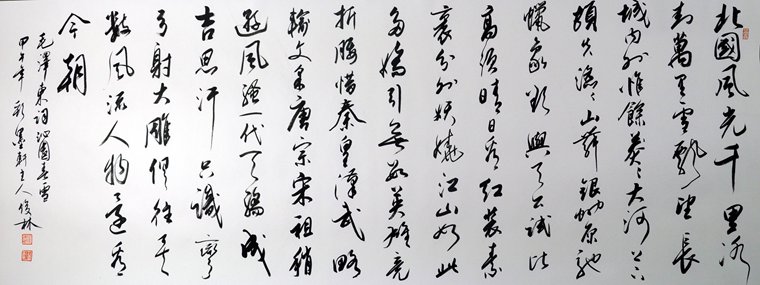 北國風光千里冰
封萬里雪飄望長
城内外惟餘莽々大河上下
頓失滔々山舞銀蛇原馳
蠟象欲與天公試比
高須晴日看紅裝素
裹分外妖嬈江山如此
多嬌引無數英雄竞
折腰惜秦皇漢武略
輸文采唐宗宋祖稍
遜風騷一代天驕成
吉思汗只識彎
弓射大雕俱往矣
數風流人物還看
今朝
毛澤東詞沁園春雪
甲午年彩墨軒主人俊林